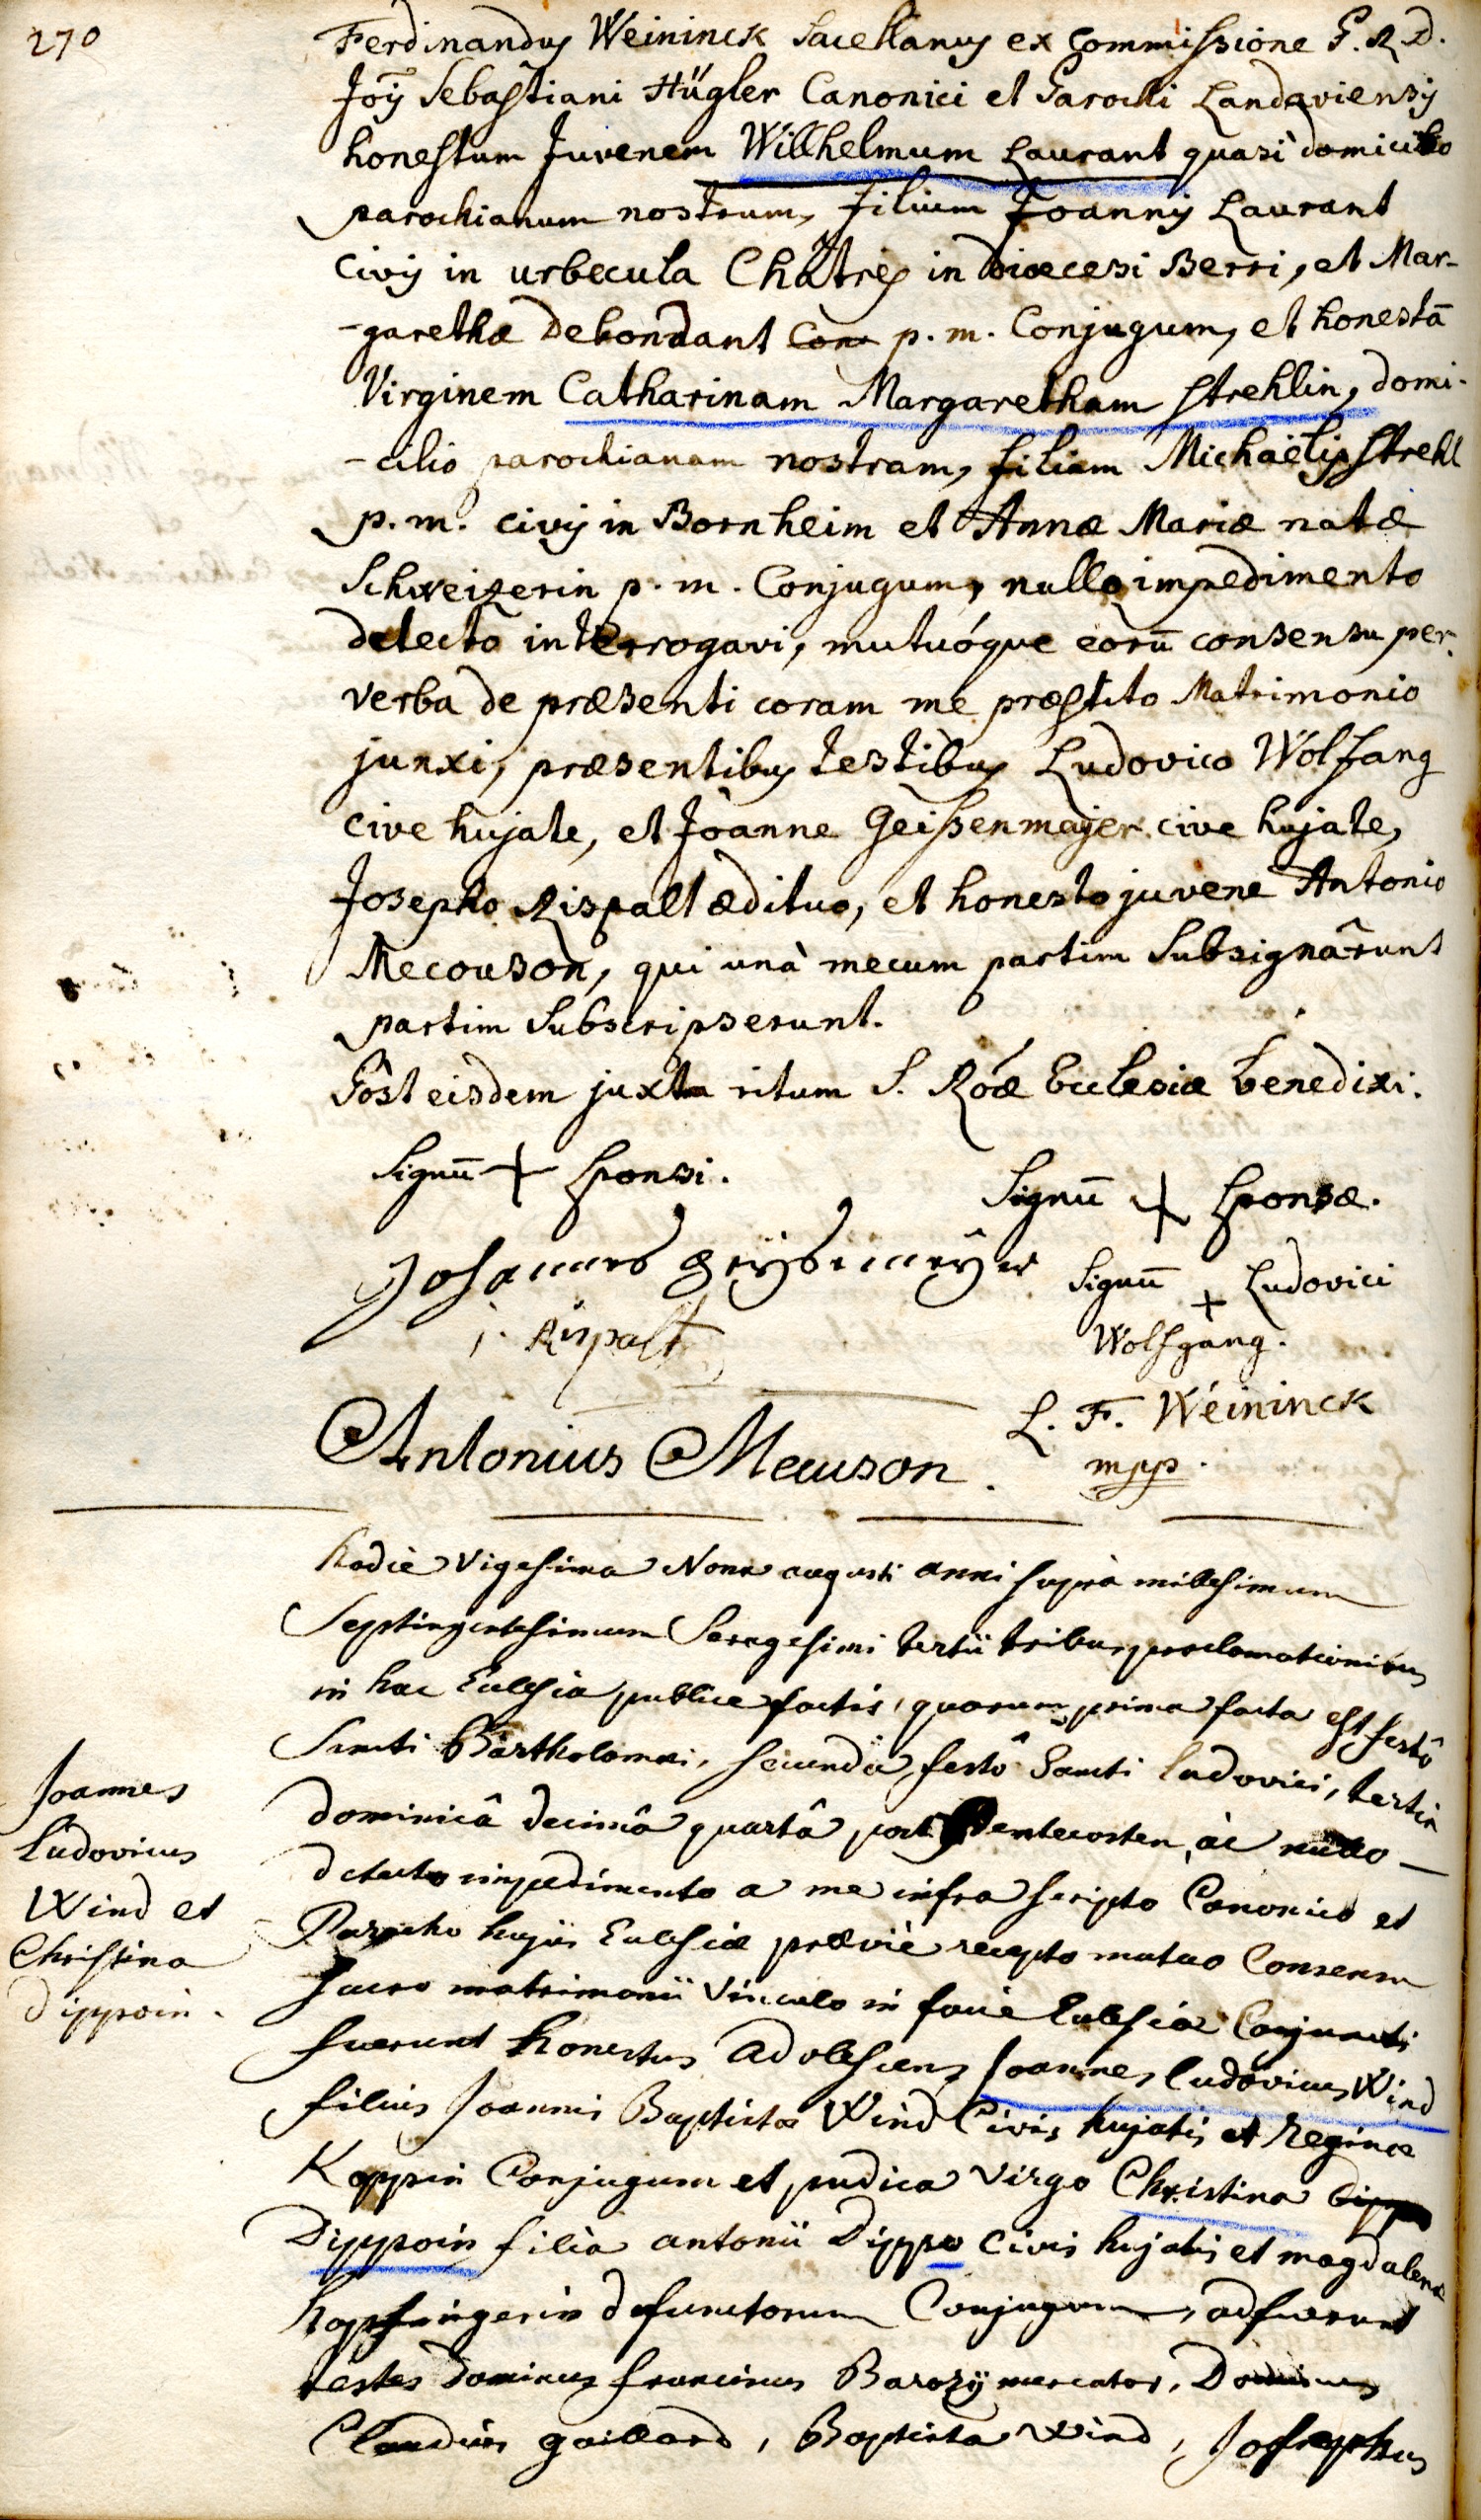 270
Ferdinandus Weininck Sacellanus ex Commissione P. R. D.
Jois Sebastiani Hügler Canonici et Parochi Landaviensis
honestum Juvenem Wilhelmum Laurant quasi domicilio
parochianum nostrum, filium Joannis Laurant
Civis in urbecula Châtres in Dioecesi Berri, et Mar-
-garethæ Debondant p. m. Conjugum, et honestā
Virginem Catharinam Margaretham Strehlin, domi-
-cilio parochianam nostram, filiam Michaëlis Strehl
p. m. civis in Bornheim et Annæ Mariæ natæ
Schweizerin p. m. Conjugum, nullo impedimento
detecto interrogavi, mutuóque eorū consensu per
verba de præsenti coram me præstito Matrimonio
junxi, præsentibus testibus Ludovico Wolfang
cive hujate, et Joanne Geissenmayer cive hujate,
Josepho Rispalt ædituo, et honesto juvene Antonio
Mecouson, qui unà mecum partim Subsignârunt
partim Subscripserunt.
Post eisdem juxta ritum S. Roæ Ecclesiæ benedixi.
Signū + Sponsi.
Signū + Sponsæ.
Johannes geÿsenmeÿer
Signū + Ludovici
Wolfgang.
j. Rispalt
L. F. Weininck
mpp.
Antonius Mecuson.
hodiè Vigesima Nona augusti anni suprà millesimum
Septingentesimum Sexagesimi tertii tribus proclamationibus
in hac Ecclesia publice factis, quarum prima facta est festô
Sancti Bartholomæi, secunda, festô Sancti Ludovici, tertia
dominicâ decimâ quartâ post Pentecosten, ac nullo
detecto impedimento a me infra scripto Canonico et
Parocho hujus Ecclesiæ præviè recepto mutuo Consensu
Sacro matrimonii Vinculo in facie Ecclesiæ Conjuncti
fuerunt honestus adolescens Joannes Ludovicus Wind
filius Joannis Baptistæ Wind Civis hujatis et Reginæ
Koppin Conjugum et pudica Virgo Christina
Dippoin filia antonii Dippo Civis hujatis et magdalenæ
hopfingerin defunctorum Conjugum, adfuerunt
testes Dominus franciscus Barozy mercator, Dominus
Claudius gaillard, Baptista Wind, Josephus
Joannes
Ludovicus
Wind et
Christina
Dippoin.